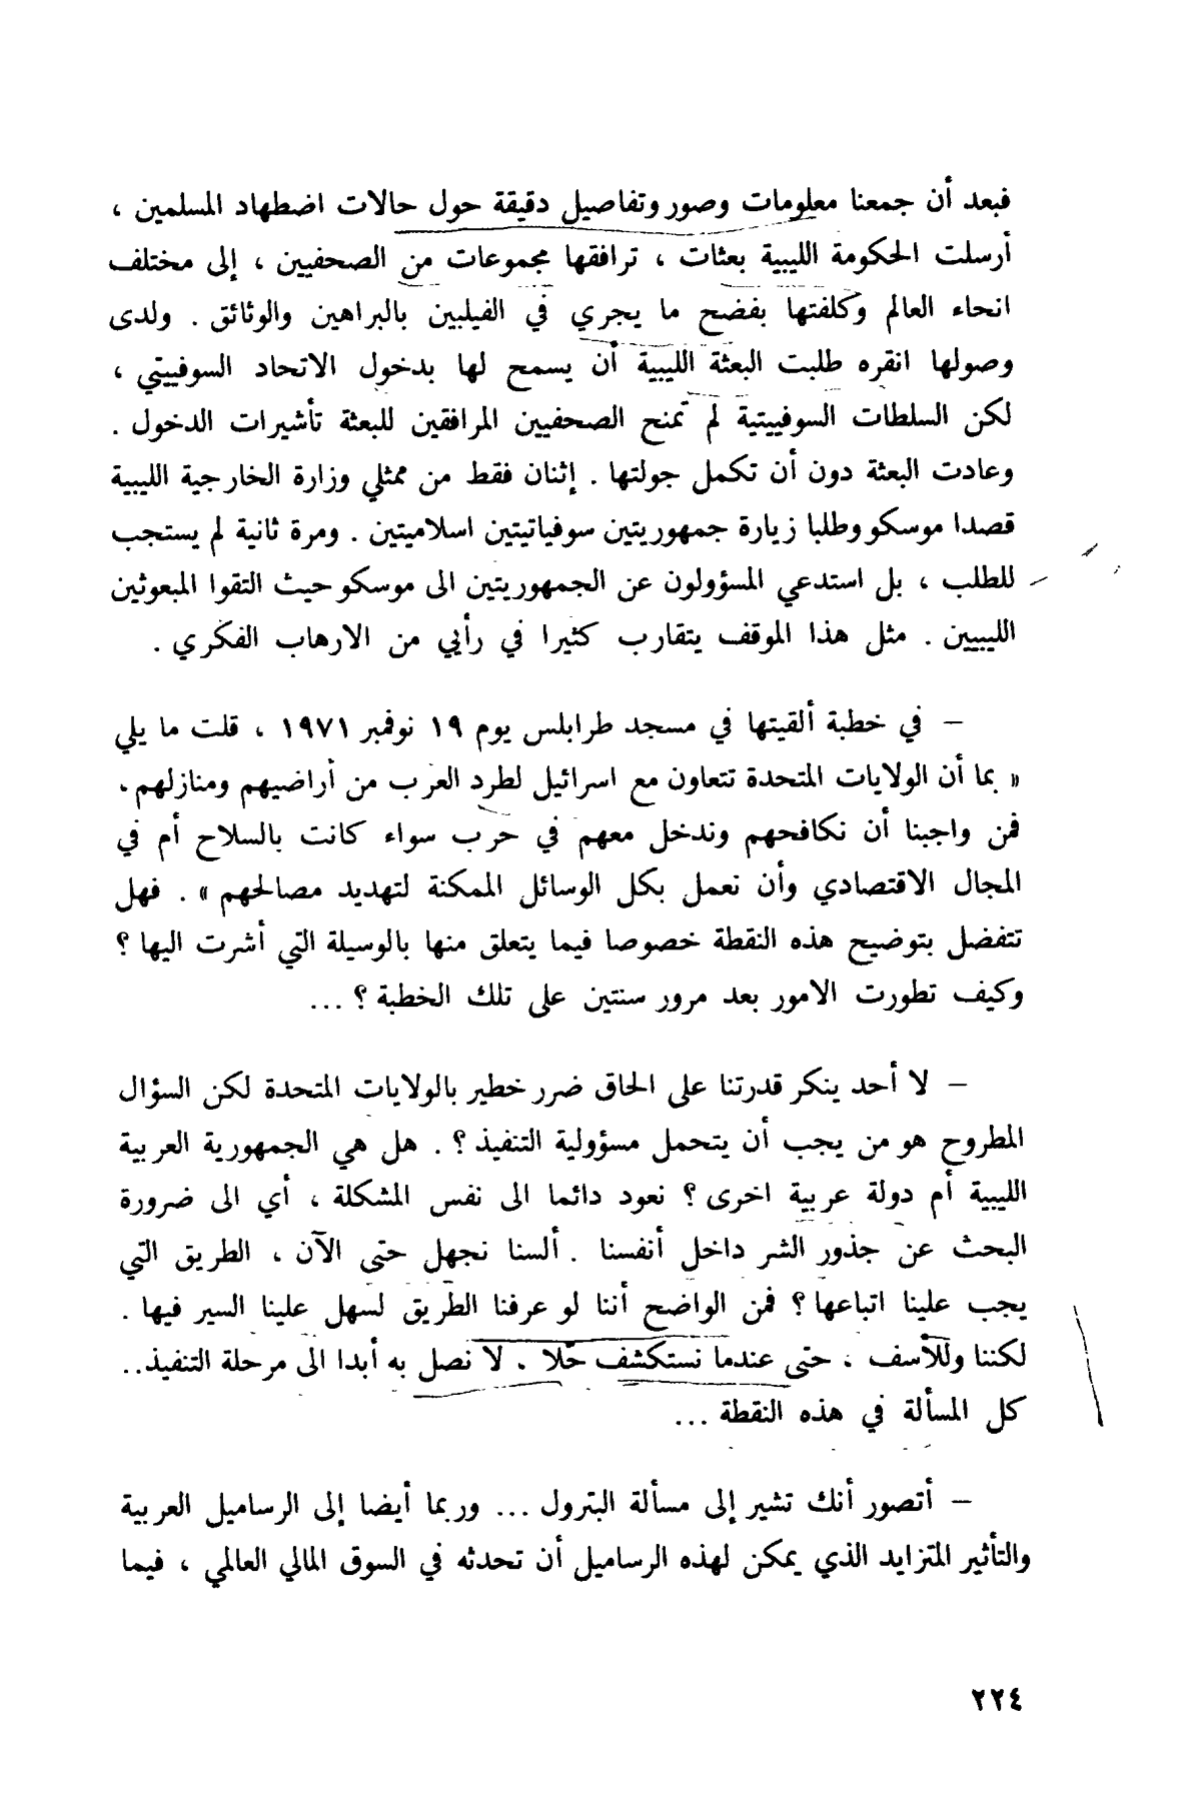 فبعد أن جمعنا معلومات وصور وتفاصيل دقيقة حول حالات اضطهاد المسلمين ،
أرسلت الحكومة الليبية بعثات ، ترافقها مجموعات من الصحفيين ، إلى مختلف
انحاء العالم وكلفتها بفضح ما يجري في الفيلبين بالبراهين والوثائق . ولدى
وصولها انقره طلبت البعثة الليبية أن يسمح لها بدخول الاتحاد السوفييتي ،
لكن السلطات السوفييتية لم تمنح الصحفيين المرافقين للبعثة تأشيرات الدخول .
وعادت البعثة دون أن تكمل جولتها . إثنان فقط من ممثلي وزارة الخارجية الليبية
قصدا موسكو وطلبا زيارة جمهوريتين سوفياتيتين اسلاميتين . ومرة ثانية لم يستجب
للطلب ، بل استدعي المسؤولون عن الجمهوريتين الى موسكو حيث التقوا المبعوثين
الليبيين . مثل هذا الموقف يتقارب كثيرا في رأيي من الارهاب الفكري .
– في خطبة ألقيتها في مسجد طرابلس يوم ١٩ نوفمبر ١٩٧١ ، قلت ما يلي
« بما أن الولايات المتحدة تتعاون مع اسرائيل لطرد العرب من أراضيهم ومنازلهم ،
فمن واجبنا أن نكافحهم وندخل معهم في حرب سواء كانت بالسلاح أم في
المجال الاقتصادي وأن نعمل بكل الوسائل الممكنة لتهديد مصالحهم » . فهل
تتفضل بتوضيح هذه النقطة خصوصا فيما يتعلق منها بالوسيلة التي أشرت اليها ؟
وكيف تطورت الامور بعد مرور سنتين على تلك الخطبة ؟ ...
– لا أحد ينكر قدرتنا على الحاق ضرر خطير بالولايات المتحدة لكن السؤال
المطروح هو من يجب أن يتحمل مسؤولية التنفيذ ؟ . هل هي الجمهورية العربية
الليبية أم دولة عربية اخرى ؟ نعود دائما الى نفس المشكلة ، أي الى ضرورة
البحث عن جذور الشر داخل أنفسنا . ألسنا نجهل حتى الآن ، الطريق التي
يجب علينا اتباعها ؟ فمن الواضح أننا لو عرفنا الطريق لسهل علينا السير فيها .
لكننا وللأسف ، حتى عندما نستكشف حلا ، لا نصل به أبدا الى مرحلة التنفيذ..
كل المسألة في هذه النقطة ...
– أتصور أنك تشير إلى مسألة البترول ... وربما أيضا إلى الرساميل العربية
والتأثير المتزايد الذي يمكن لهذه الرساميل أن تحدثه في السوق المالي العالمي ، فيما
٢٢٤